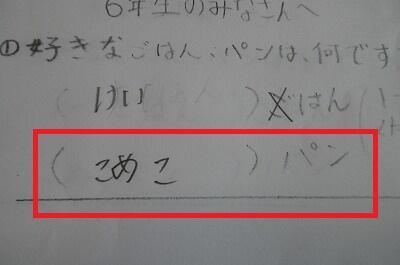 6年生のみなさんへ
①好きなごはん、パンは、何です
( けい ) ごはん
( こめこ ) パン